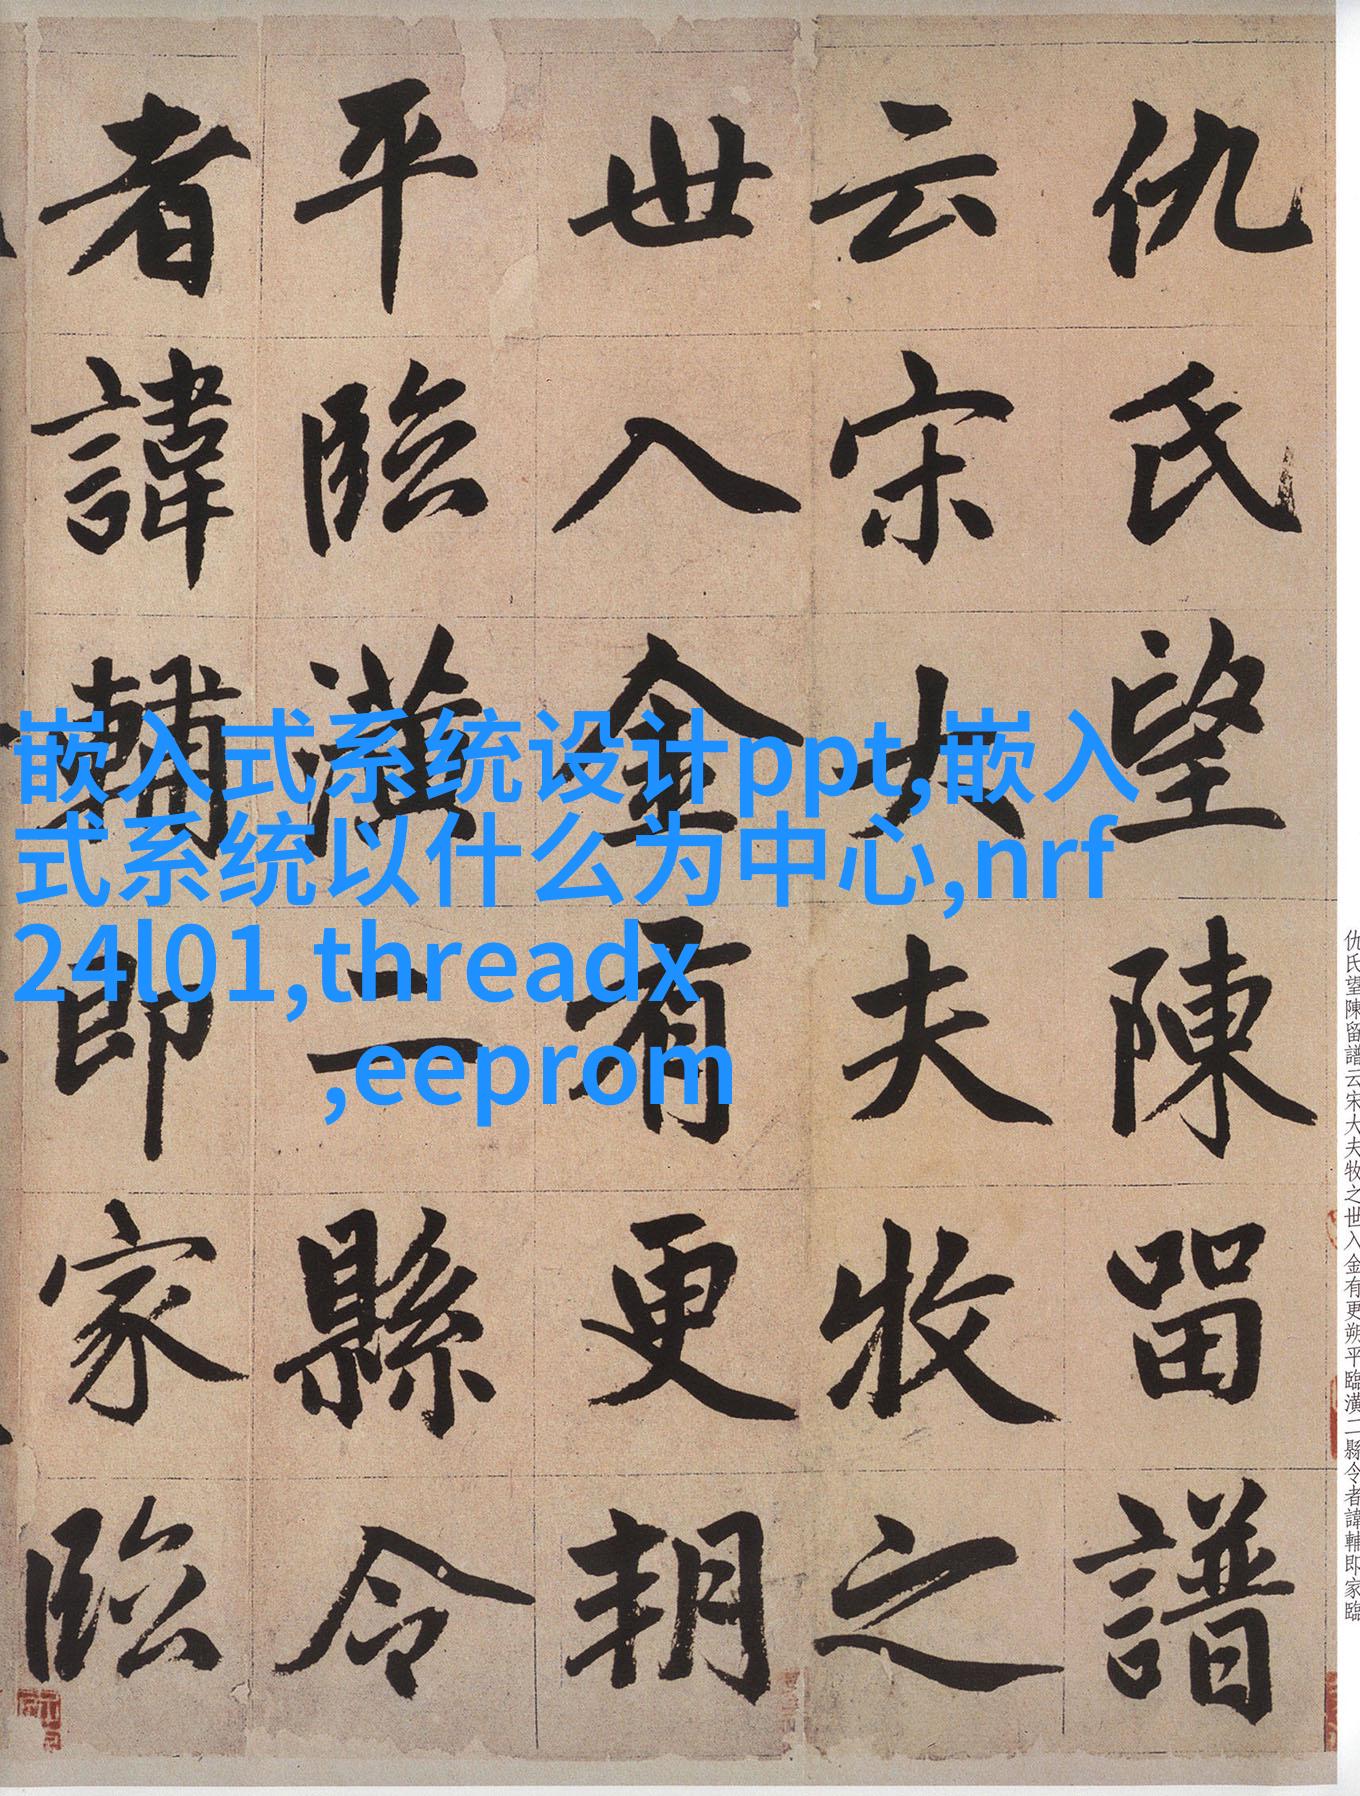 仇氏望陳留譜
云宋大夫牧之
世入金有更朔
平臨潢二縣令
者諱輔即家臨
嵌入式系统设计ppt,嵌入
式系统以什么为中心,nrf
24l01,threadx
,eeprom
仇氏望陳留譜云宋大夫牧之世入金有更朔平臨潢二縣令者諱輔即家臨